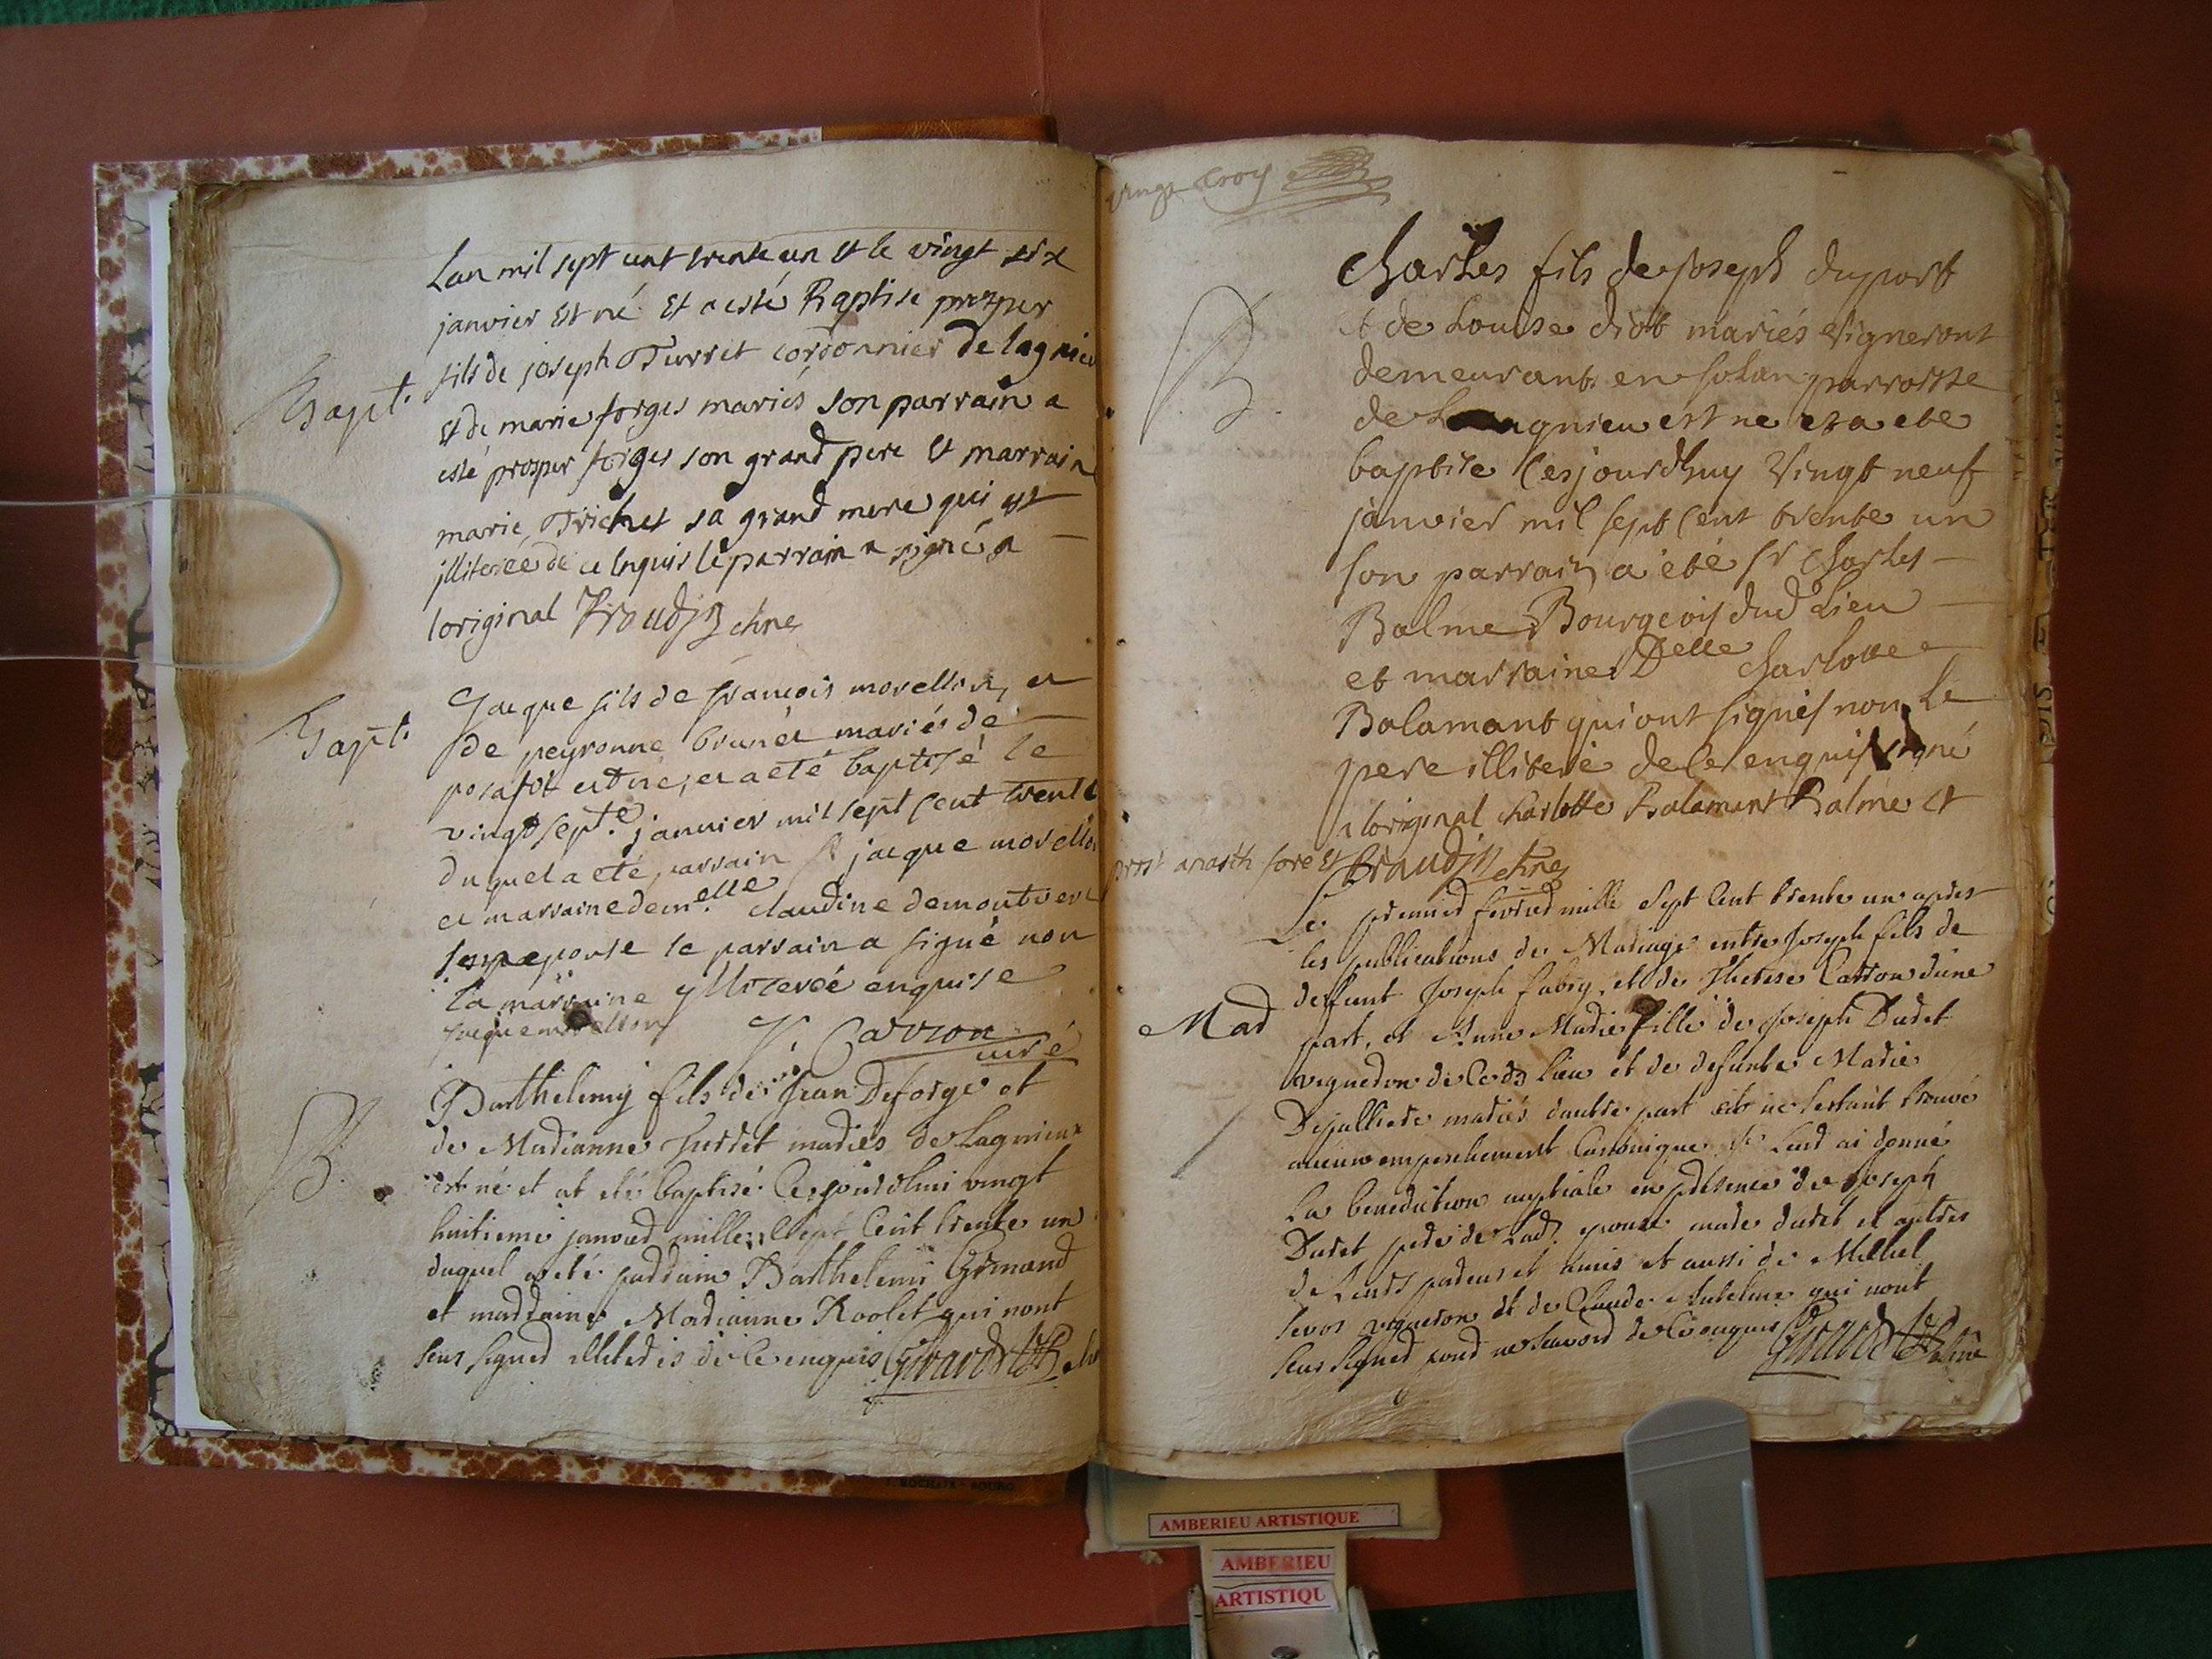 Lan mil sept cent trente un et le vingt six
janvier est né et a esté Baptise prosper
fils de joseph Turret cordonnier de lagnieu
Bapt.
et de marie forges mariés son parrain a
esté prosper forges son grand pere et marrain
marie Trichet sa grand mere qui est
illiterée de ce enquis le parrain a signé a
loriginal
Jacque fils de francois morellon, et
Bapt.
de peyronne brunet mariés de
posafol est né, et a eté baptisé le
vingt septe. janvier mil sept cent trente
duquel a eté parrain Sr jacque morellon
et marraine demelle claudine demontver
le parrain a signé non
la marraine yllitereé enquise
jacque morellon
Carron
curé
Barthelemy fils de Jean Deforge et
de Marianne Turret mariés de Lagnieux
B.
est né et at eté baptisé Cejourdhui vingt
huitieme janvier mille Sept Cent trente un
duquel a eté parrain Barthelemi Grimand
et marraine Marianne Roolet qui nont
seus signer illiteris de Ce enquis Girard
vingt troy
Charles fils de joseph duport
et de Louise diot mariés vigneront
B.
demeurants en solan parroisse
de Lagnieu est ne et a ete
baptise Cesjourdhuy vingt neuf
janvier mil sept Cent trente un
son parrain a été sr Charles
Balme Bourgeois dud Lieu
et marraine Delle charlotte
Balamant qui ont signés non le
pere illiteré de Ce enquis signé
a loriginal charlotte Balamant Balme et
Le premier fevrier mille Sept Cent trente un apres
les publications de Mariage entre Joseph fils de
defunt Joseph fabry, et de Therese Carron dune
Mar
part, et Anne Marie fille de Joseph Duret
vigneron de Ce dt lieu et de defunte Marie
mariés dautre part et ne sestant trouvé
aucun empeschement Canonique je Leur ai donné
La benediction nuptiale en presence de Joseph
Duret pere de Lad. epouse duret et aultres
de Leurs parens et amis et aussi de Michel
vigneron et de Claude Anthelme qui nont
seus signer pour ne scavoir de Ce enquis Girard
AMBERIEU ARTISTIQUE
AMBERIEU
ARTISTIQU